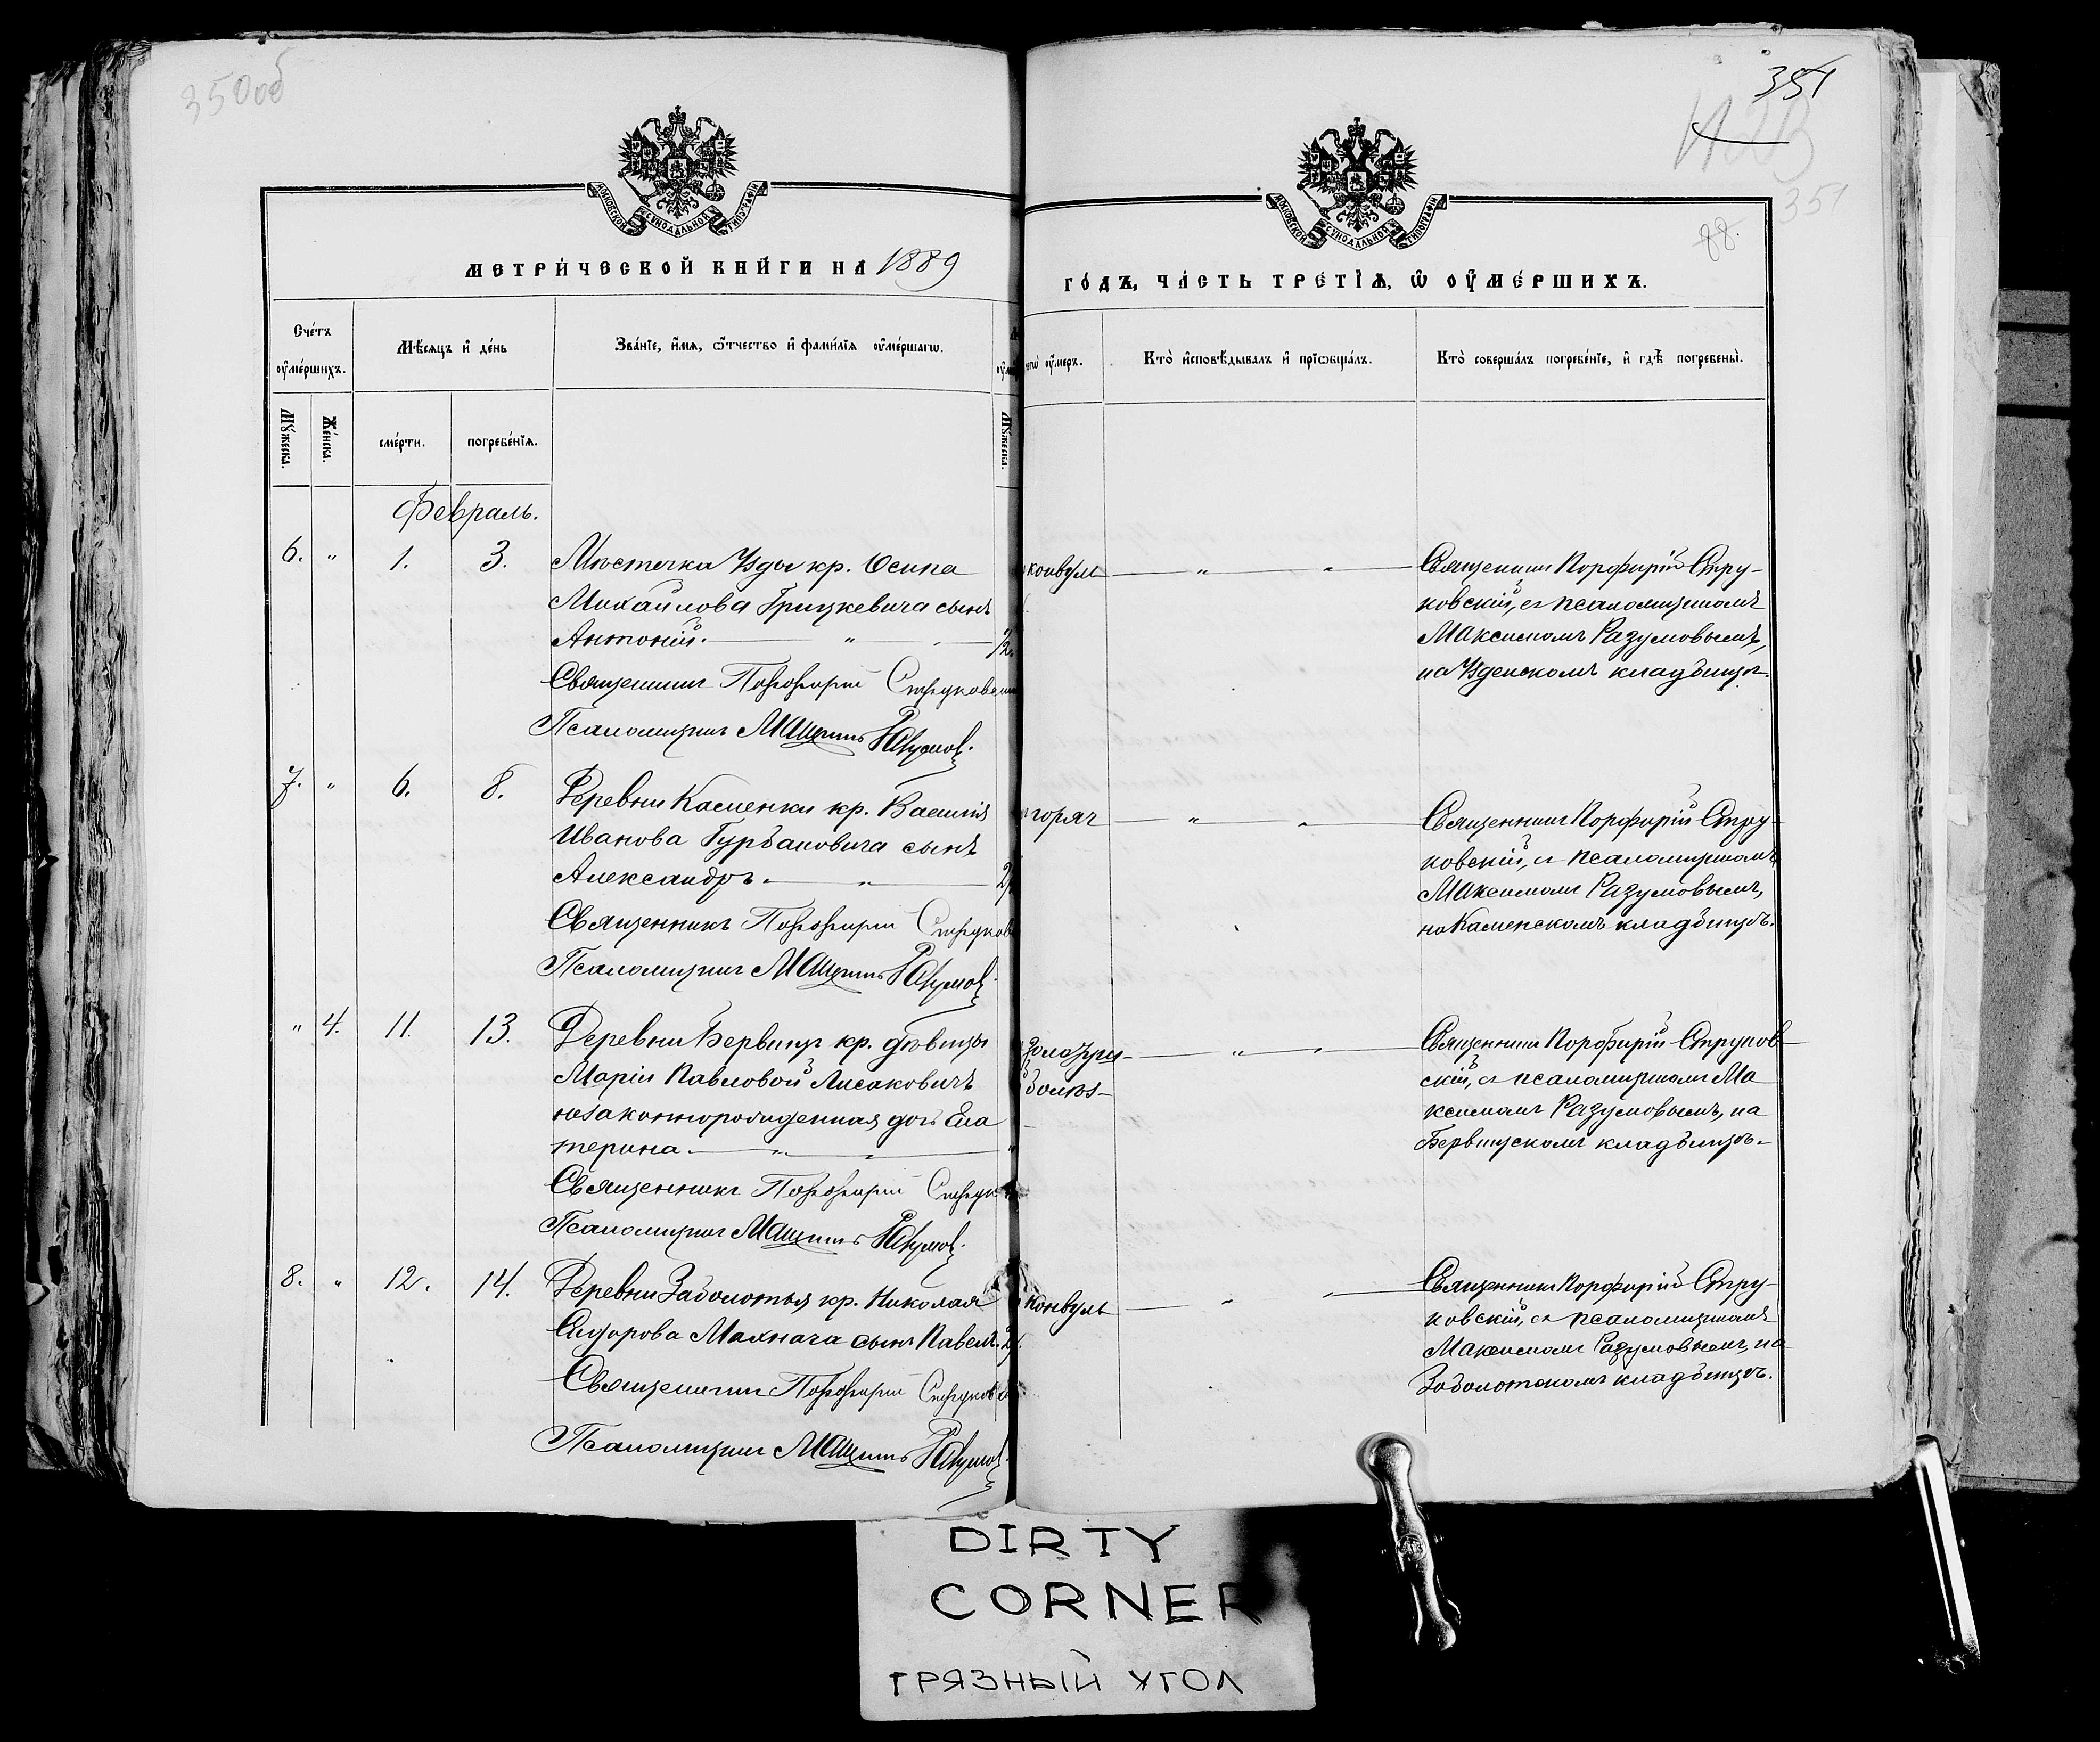 350об
351
351
88.
МОСКОВСКОЙ СѴНОДАЛЬНОЙ ТИПОГРАФІИ
МОСКОВСКОЙ СѴНОДАЛЬНОЙ ТИПОГРАФІИ
МЕТРИ́ЧЕСКОЙ КНИ́ГИ НА 1889
ГО́ДЪ, ЧА́СТЬ ТРЕ́ТІѦ, Ѡ҆ ОУ҆МЕ́РШИХЪ.
Сче́тъ оу҆ме́ршихъ.
Мѣ́сѧцъ и҆ де́нь
Зва́нїе, и҆́мѧ, ѻ҆́тчество и҆ фами́лїѧ оу҆ме́ршагѡ.
чегѡ̀ оу҆́меръ.
Кто̀ и҆сповѣ́дывалъ и҆ прїѡбща́лъ.
Кто̀ соверша́лъ погребе́нїе, и҆ гдѣ̀ погребены̀.
Мꙋ́жеска.
Же́нска.
сме́рти.
погребе́нїѧ.
Мꙋ́жеска.
Февраль.
6. „ 1. 3. Мѣстечка Узды кр. Осипа
Михайлова Грицкевича сынъ
Антоній. „
Священникъ Порфирій Струковскій
Псаломщикъ Максимъ Разумов.
конвул „ „ Священникъ Порфирій Стру-
ковскій, съ псаломщикомъ
Максимомъ Разумовымъ,
на Узденскомъ кладбищѣ.
7. „ 6. 8. Деревни Каменки кр. Василія
Иванова Гурбановича сынъ
Александръ. „
Священникъ Порфирій Струков
Псаломщикъ Максимъ Разумов.
горяч „ „ Священникъ Порфирій Стру-
ковскій, съ псаломщикомъ
Максимомъ Разумовымъ,
на Каменскомъ кладбищѣ.
„ 4. 11. 13. Деревни Бервищъ кр. дѣвицы
Маріи Павловой Лисаковичъ
незаконнорожденная дочь Ека
терина. „ „
Священникъ Порфирій Струк
Псаломщикъ Максимъ Разумов.
золотуш-
болѣз-
„ „ Священникъ Порфирій Струков
скій, съ псаломщикомъ Ма
ксимомъ Разумовымъ, на
Бервищскомъ кладбищѣ.
8. „ 12. 14. Деревни Заболотья кр. Николая
Сидорова Махнача сынъ Павелъ. 2
Священникъ Порфирій Струков
Псаломщикъ Максимъ Разумов.
конвуль „ „ Священникъ Порфирій Стру-
ковскій, съ псаломщикомъ
Максимомъ Разумовымъ, на
Заболотскомъ кладбищѣ.
DIRTY
CORNER
ГРЯЗНЫЙ УГОЛ